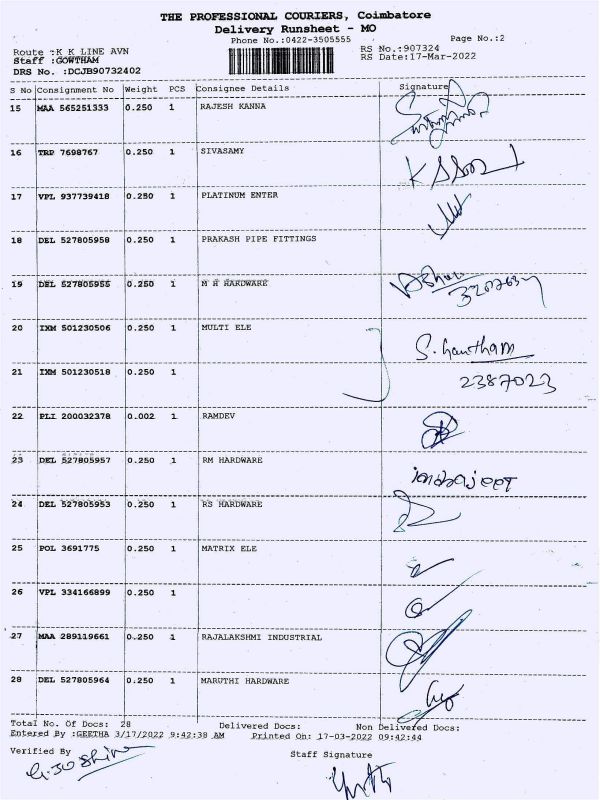 THE PROFESSIONAL COURIERS, Coimbatore
Delivery Runsheet - MO
Phone No.:0422-3505555 Page No.:2
Route :K K LINE AVN RS No.:907324
Staff :GOWTHAM RS Date:17-Mar-2022
DRS No. :DCJB90732402
S No Consignment No Weight PCS Consignee Details Signature
15 MAA 565251333 0.250 1 RAJESH KANNA
16 TRP 7698767 0.250 1 SIVASAMY
17 VPL 937739418 0.250 1 PLATINUM ENTER
18 DEL 527805958 0.250 1 PRAKASH PIPE FITTINGS
19 DEL 527805955 0.250 1 M H HARDWARE
20 IXM 501230506 0.250 1 MULTI ELE S. hautham
21 IXM 501230518 0.250 1 2387023
22 PLI 200032378 0.002 1 RAMDEV
23 DEL 527805957 0.250 1 RM HARDWARE
24 DEL 527805953 0.250 1 RS HARDWARE
25 POL 3691775 0.250 1 MATRIX ELE
26 VPL 334166899 0.250 1
27 MAA 289119661 0.250 1 RAJALAKSHMI INDUSTRIAL
28 DEL 527805964 0.250 1 MARUTHI HARDWARE
Total No. Of Docs: 28 Delivered Docs: Non Delivered Docs:
Entered By :GEETHA 3/17/2022 9:42:38 AM Printed On: 17-03-2022 09:42:44
Verified By Staff Signature